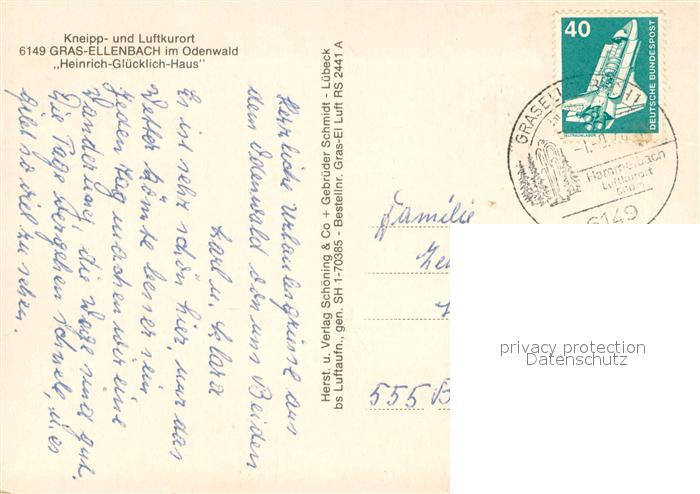 Kneipp- und Luftkurort
6149 GRAS-ELLENBACH im Odenwald
„Heinrich-Glücklich-Haus"
Herzliche Urlaubsgrüsse aus
dem Odenwald von uns Beiden
Karl u. Klara
Es ist sehr schön hier, nur das
Wetter könnte besser sein
Jeden Tag machen wir eine
Wanderung die Wege sind gut.
Die Tage vergehen schnell, u. es
gibt so viel zu sehen.
Herst. u. Verlag Schöning & Co + Gebrüder Schmidt - Lübeck
bs Luftaufn., gen. SH 1-70385 - Bestellnr. Gras-El Luft RS 2441 A
40
DEUTSCHE BUNDESPOST
GRASELLENBACH 1
Hammelbach
Luftkurort
6149
Familie
555 B
privacy protection
Datenschutz